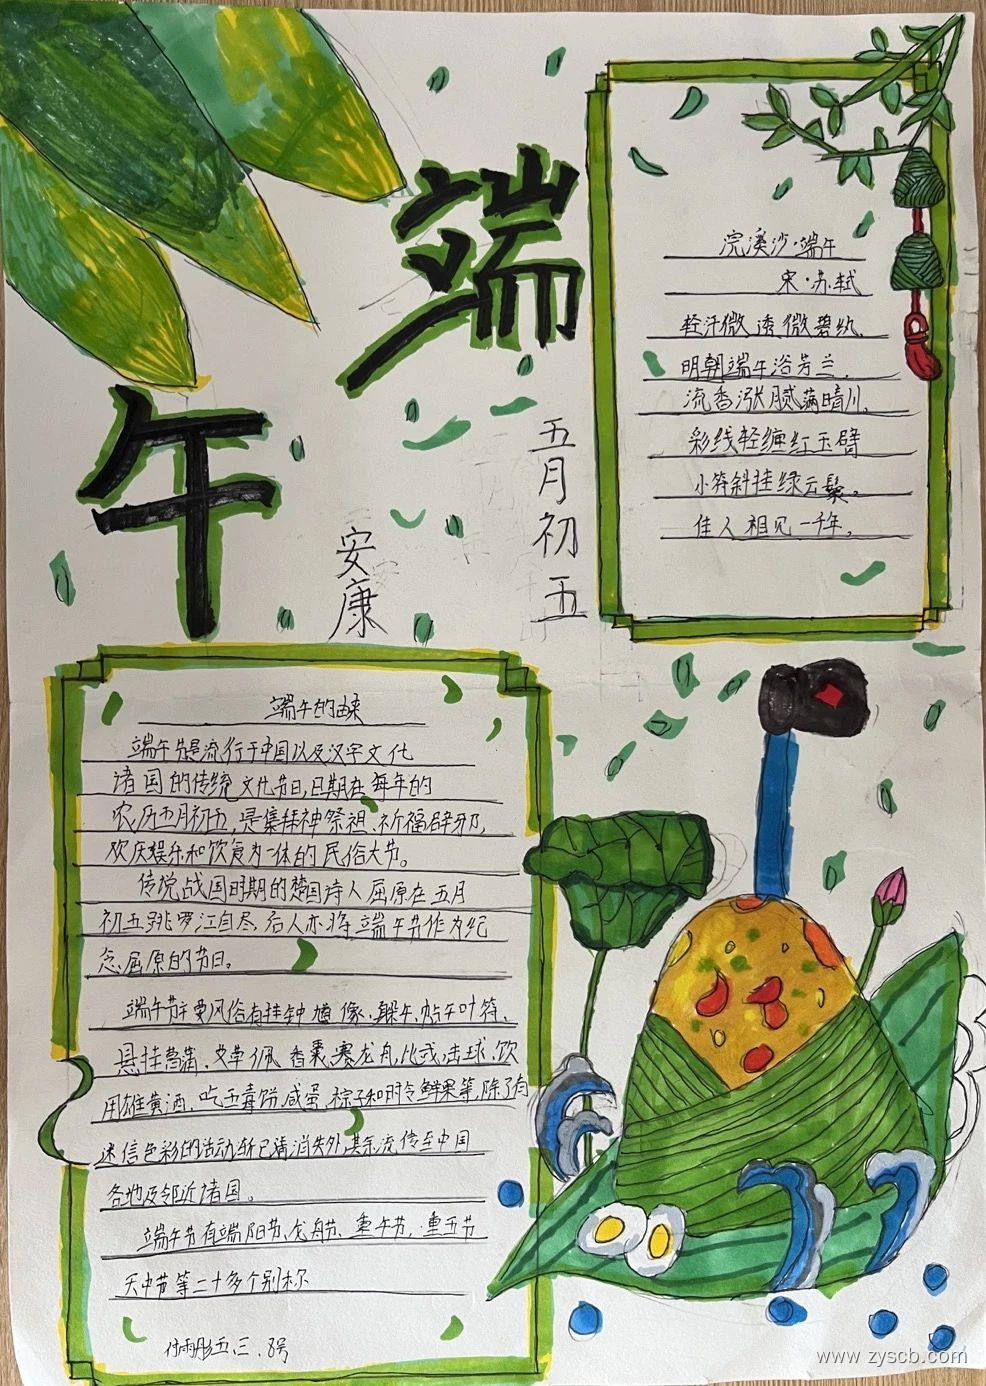 端
午
五月初五
安康
浣溪沙·端午
宋·苏轼
轻汗微透微碧纨
明朝端午浴芳兰.
流香涨腻满晴川.
彩线轻缠红玉臂
小符斜挂绿云鬟。
佳人相见一千年.
端午的由来
端午节是流行于中国以及汉字文化
诸国的传统文化节日,日期在每年的
农历五月初五,是集拜神祭祖、祈福辟邪,
欢庆娱乐和饮食为一体的民俗大节。
传说战国时期的楚国诗人屈原在五月
初五跳罗江自尽,后人亦将端午节作为纪
念屈原的节日。
端午节主要风俗有挂钟馗像、躲午、帖午叶符、
悬挂菖蒲、艾草、佩香囊、赛龙舟,比武,击球、饮
用雄黄酒、吃五毒饼,咸蛋,粽子和时令鲜果等,除了有
迷信色彩的活动渐已消消失外,其余流传至中国
各地及邻近诸国。
端午节有端阳节、龙舟节、重午节,重五节
天中节等二十多个别称
五、三、8号
www.zyscb.com